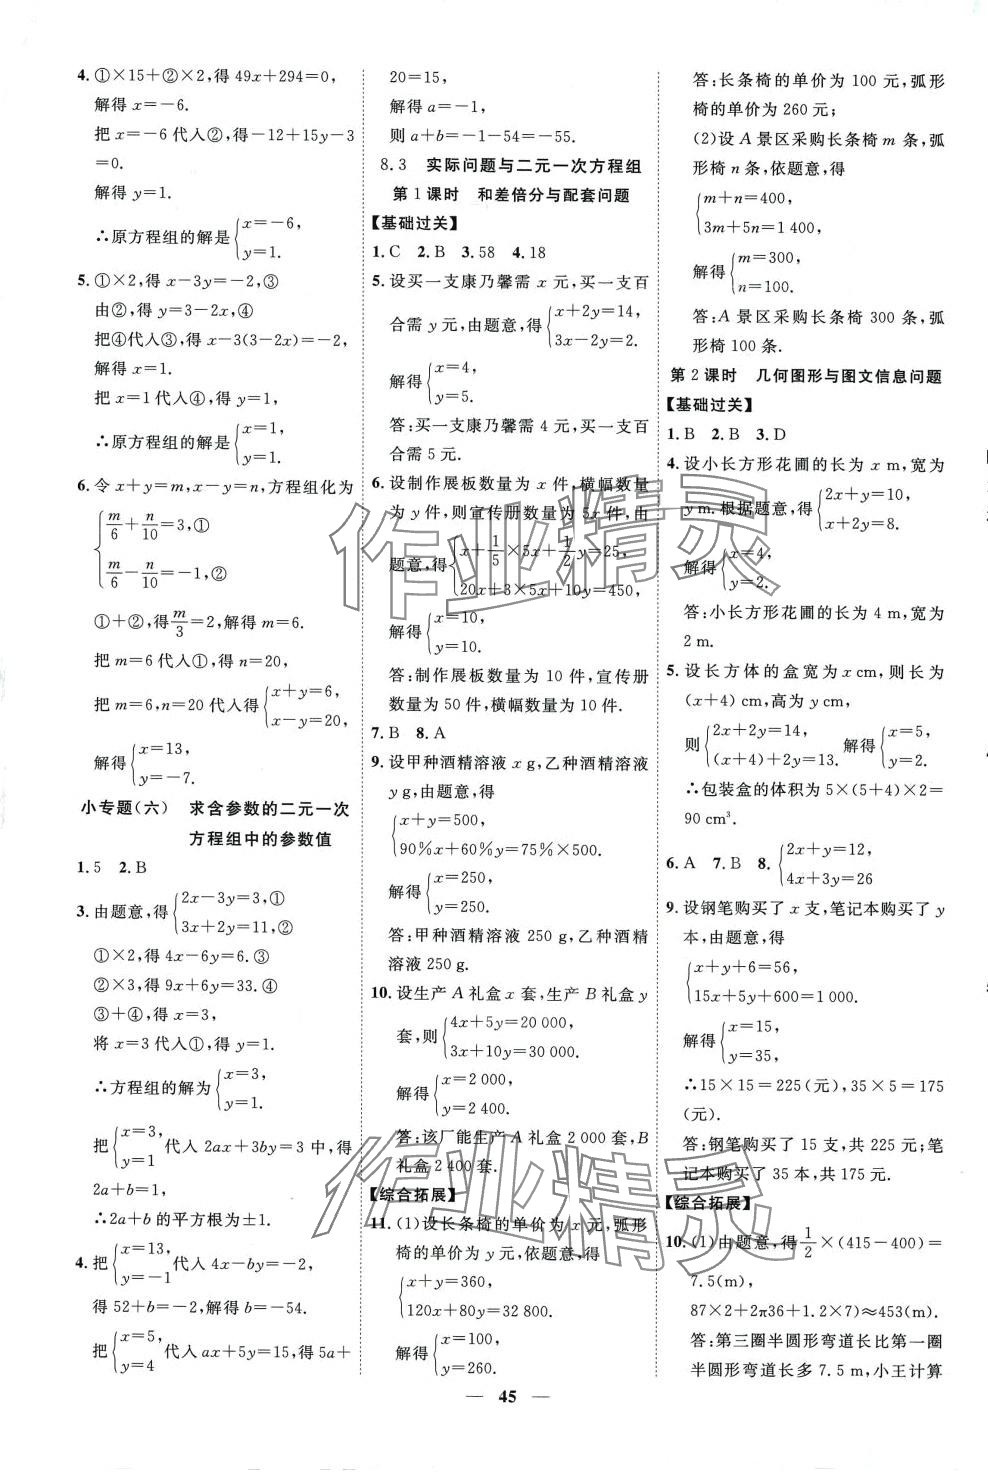 4. ①×15+②×2,得 49x+294=0,
解得 x=-6.
把 x=-6 代入②,得-12+15y-3
=0.
解得 y=1.
∴原方程组的解是{x=-6,
y=1.
5. ①×2,得 x-3y=-2,③
由②,得 y=3-2x,④
把④代入③,得 x-3(3-2x)=-2,
解得 x=1.
把 x=1 代入④,得 y=1,
∴原方程组的解是{x=1,
y=1.
6. 令 x+y=m,x-y=n,方程组化为
{m/6+n/10=3,①
m/6-n/10=-1,②
①+②,得m/3=2,解得 m=6.
把 m=6 代入①,得 n=20,
把 m=6,n=20 代入得{x+y=6,
x-y=20,
解得{x=13,
y=-7.
小专题(六) 求含参数的二元一次
方程组中的参数值
1. 5 2. B
3. 由题意,得{2x-3y=3,①
3x+2y=11,②
①×2,得 4x-6y=6.③
②×3,得 9x+6y=33.④
③+④,得 x=3,
将 x=3 代入①,得 y=1.
∴方程组的解为{x=3,
y=1.
把{x=3,
y=1.代入 2ax+3by=3 中,得
2a+b=1,
∴2a+b 的平方根为±1.
4. 把{x=13,
y=-1代入 4x-by=-2,
得 52+b=-2,解得 b=-54.
把{x=5,
y=4 代入 ax+5y=15,得 5a+
20=15,
解得 a=-1,
则 a+b=-1-54=-55.
8.3 实际问题与二元一次方程组
第 1 课时 和差倍分与配套问题
【基础过关】
1. C 2. B 3. 58 4. 18
5. 设买一支康乃馨需 x 元,买一支百
合需 y 元,由题意,得{x+2y=14,
3x-2y=2.
解得{x=4,
y=5.
答:买一支康乃馨需 4 元,买一支百
合需 5 元.
6. 设制作展板数量为 x 件,横幅数量
为 y 件,则宣传册数量为 5x 件,由
题意,得{x+1/5×5x+1/2y=25,
20x+3×5x+10y=450,
解得{x=10,
y=10.
答:制作展板数量为 10 件,宣传册
数量为 50 件,横幅数量为 10 件.
7. B 8. A
9. 设甲种酒精溶液 x g,乙种酒精溶液
y g,由题意,得
{x+y=500,
90%x+60%y=75%×500.
解得{x=250,
y=250.
答:甲种酒精溶液 250 g,乙种酒精
溶液 250 g.
10. 设生产 A 礼盒 x 套,生产 B 礼盒 y
套,则{4x+5y=20 000,
3x+10y=30 000.
解得{x=2 000,
y=2 400.
答:该厂能生产 A 礼盒 2 000 套,B
礼盒 2 400 套.
【综合拓展】
11. (1)设长条椅的单价为 x 元,弧形
椅的单价为 y 元,依题意,得
{x+y=360,
120x+80y=32 800.
解得{x=100,
y=260.
答:长条椅的单价为 100 元,弧形
椅的单价为 260 元;
(2)设 A 景区采购长条椅 m 条,弧
形椅 n 条,依题意,得
{m+n=400,
3m+5n=1 400,
解得{m=300,
n=100.
答:A 景区采购长条椅 300 条,弧
形椅 100 条.
第 2 课时 几何图形与图文信息问题
【基础过关】
1. B 2. B 3. D
4. 设小长方形花圃的长为 x m,宽为
y m.根据题意,得{2x+y=10,
x+2y=8.
解得{x=4,
y=2.
答:小长方形花圃的长为 4 m,宽为
2 m.
5. 设长方体的盒宽为 x cm,则长为
(x+4)cm,高为 y cm,
则{2x+2y=14,
(x+4)+2y=13. 解得{x=5,
y=2.
∴包装盒的体积为 5×(5+4)×2=
90 cm³.
6. A 7. B 8. {2x+y=12,
4x+3y=26
9. 设钢笔购买了 x 支,笔记本购买了 y
本,由题意,得
{x+y+6=56,
15x+5y+600=1 000.
解得{x=15,
y=35,
∴15×15=225(元),35×5=175
(元).
答:钢笔购买了 15 支,共 225 元;笔
记本购买了 35 本,共 175 元.
【综合拓展】
10. (1)由题意,得1/2×(415-400)=
7.5(m),
87×2+2π36+1.2×7)≈453(m).
答:第三圈半圆形弯道长比第一圈
半圆形弯道长多 7.5 m,小王计算
— 45 —
作业精灵
作业精灵